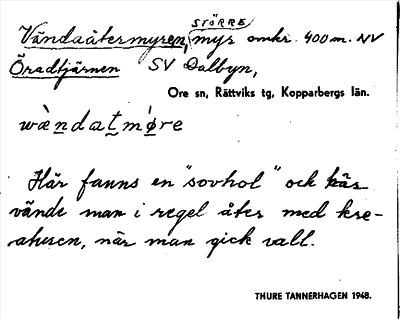 STÖRRE
Vändaåtermyren, myr omkr. 400 m. NV
Öradtjärnen SV Dalbyn,
Ore sn, Rättviks tg, Kopparbergs län.
wæ̀ndatmǿre
Här fanns en "sovhol" och här
vände man i regel åter med kre-
aturen, när man gick vall.
THURE TANNERHAGEN 1948.